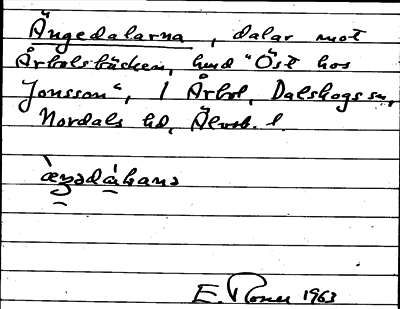 Ängedalarna, dalar mot
Årbolsbäcken, hmd "Öst hos
Jonsson", 1 Årbol, Dalskogs sn,
Nordals hd, Älvsb. l.
E. Rosen 1963